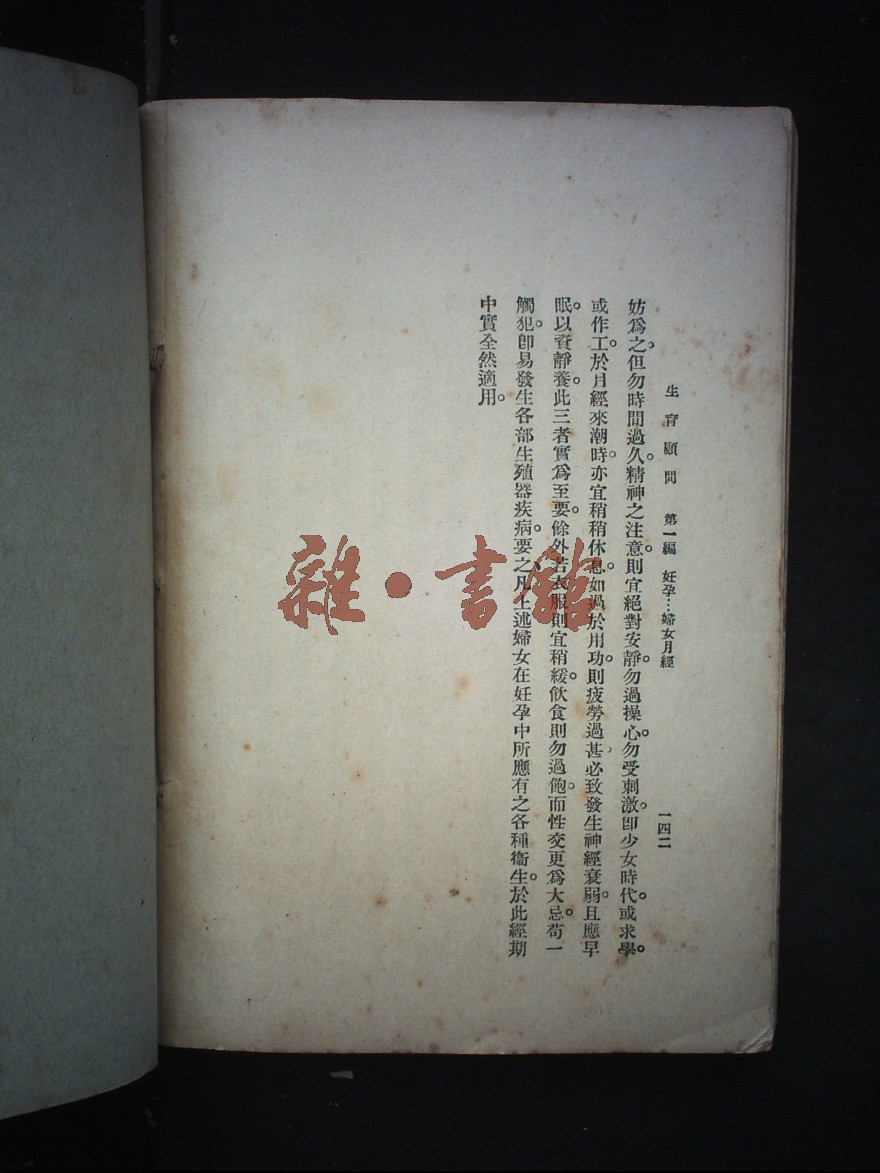 生育顧問　第一編　妊孕…婦女月經　一四二
妨爲之。但勿時間過久。精神之注意。則宜絕對安靜。勿過操心。勿受刺激。卽少女時代。或求學。
或作工。於月經來潮時。亦宜稍稍休息。如過於用功。則疲勞過甚。必致發生神經衰弱。且應早
眠。以資靜養。此三者實爲至要。餘外若衣服則宜稍緩。飮食則勿過飽。而性交更爲大忌。苟一
觸犯。卽易發生各部生殖器疾病。要之凡上述婦女在妊孕中所應有之各種衞生。於此經期
中實全然適用。
雜·書館